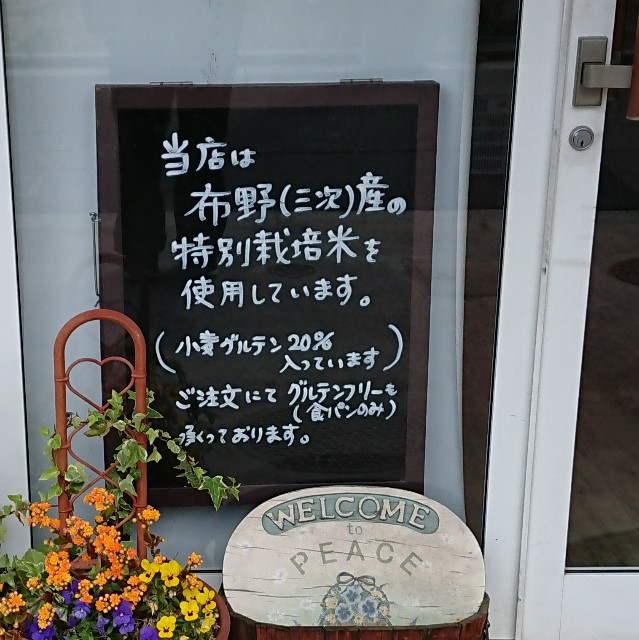 当店は
布野(三次)産の
特別栽培米を
使用しています。
(小麦グルテン20%
入っています)
ご注文にて グルテンフリーも
(食パンのみ)
承っております。
WELCOME
to
PEACE